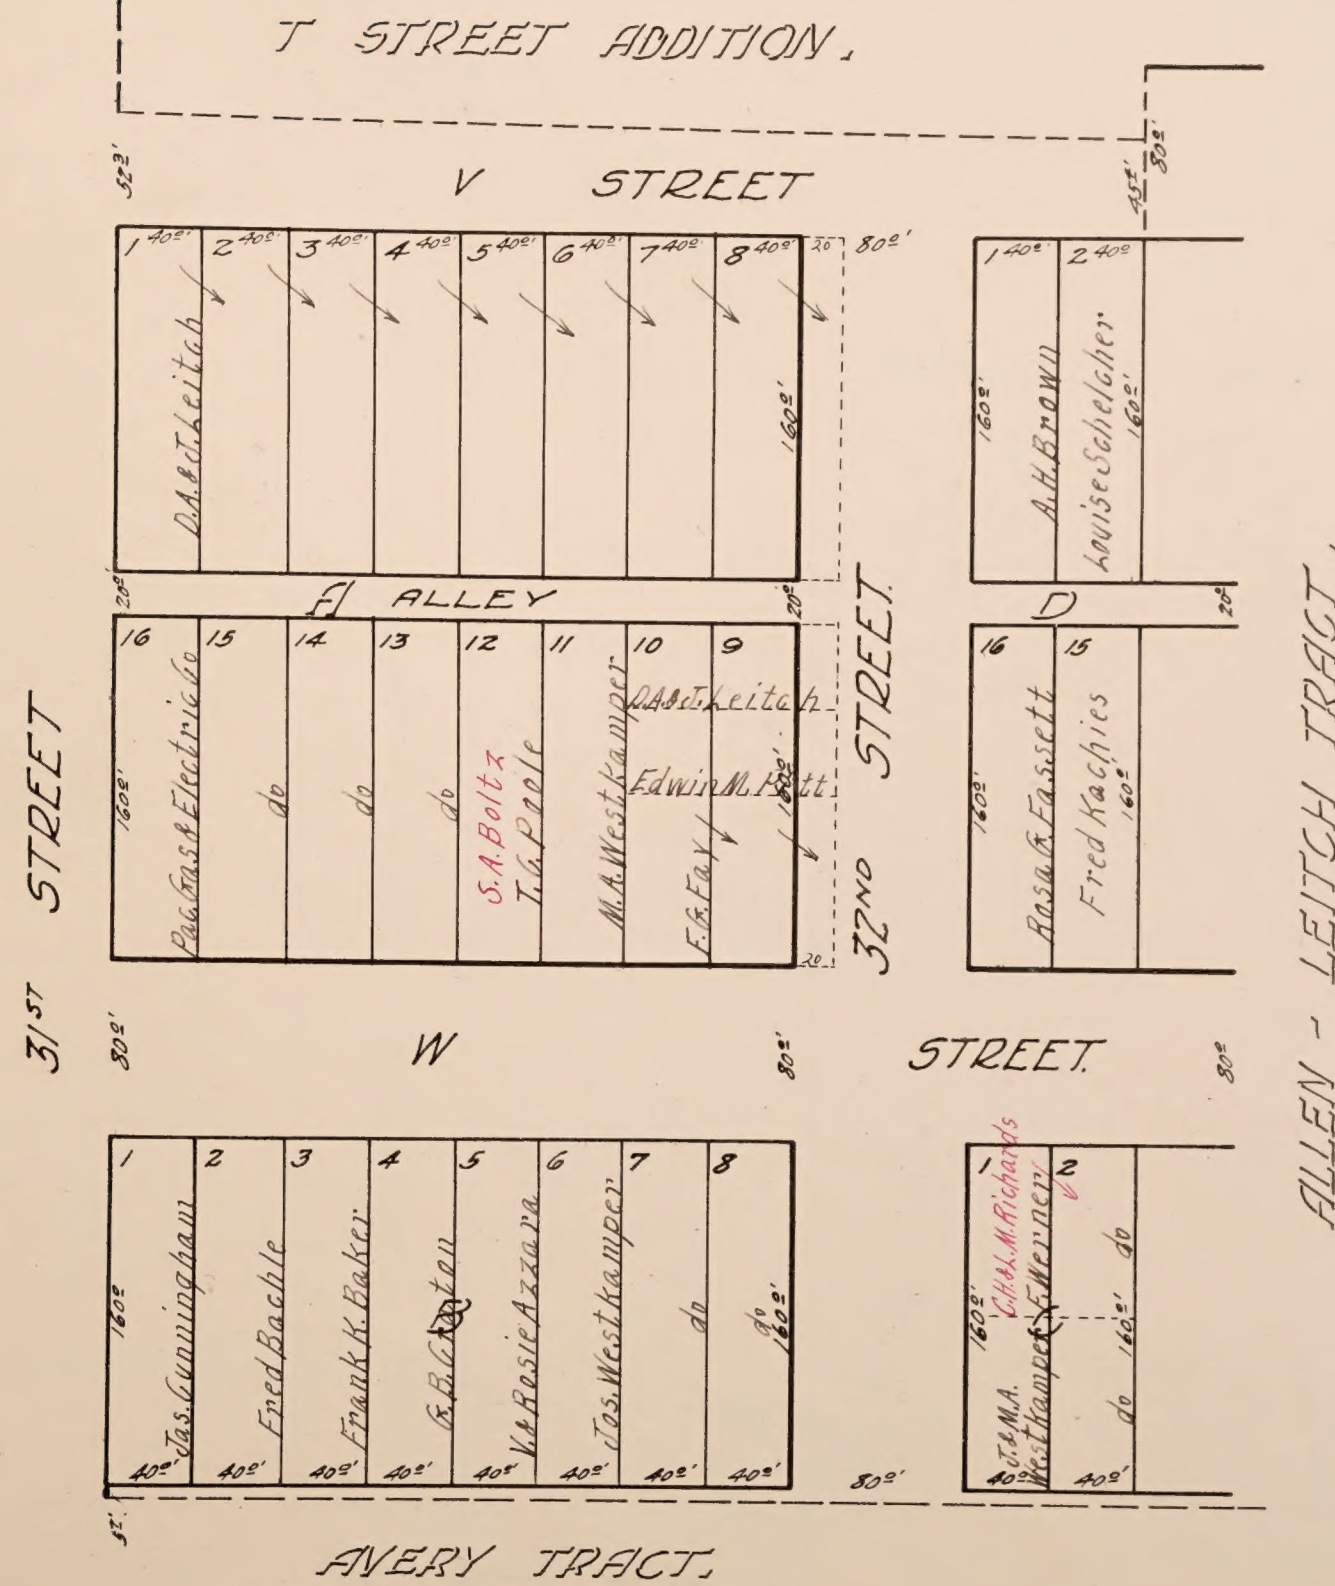 T STREET ADDITION.
V STREET
80º'
45º'
1 40º'
2 40º'
3 40º'
4 40º'
5 40º'
6 40º'
7 40º'
8 40º'
20
80º'
D.A.&J.Leitch
160º'
1 40º'
2 40º
160º'
A.H.Brown
Louise Schelcher
160º'
20º'
A ALLEY
20º'
D
20º
16
15
14
13
12
11
10
9
160º'
Pac.Gas&Electric Co
do
do
do
S.A.Boltz
T.C.Poole
M.A.Westkamper
D.A.&J.Leitch
Edwin M.
E.G.Fay
160º'
20
16
15
160º'
Rosa G.Fassett
Fred Kachies
160º'
31ST STREET
32ND STREET.
80º'
W STREET.
80º'
80º
1
2
3
4
5
6
7
8
160º
Jas.Cunningham
Fred Bachle
Frank K.Baker
V.&Rosie Azzara
Jos.Westkamper
do
do
160º'
40º'
40º'
40º'
40º'
40º'
40º'
40º'
40º'
80º'
1
2
C.H.&L.M.Richards
F.Werner
160º'
J.&M.A.
Westkamper
do
do
160º'
40º'
40º'
AVERY TRACT.
ALLEN - LEITCH TRACT.